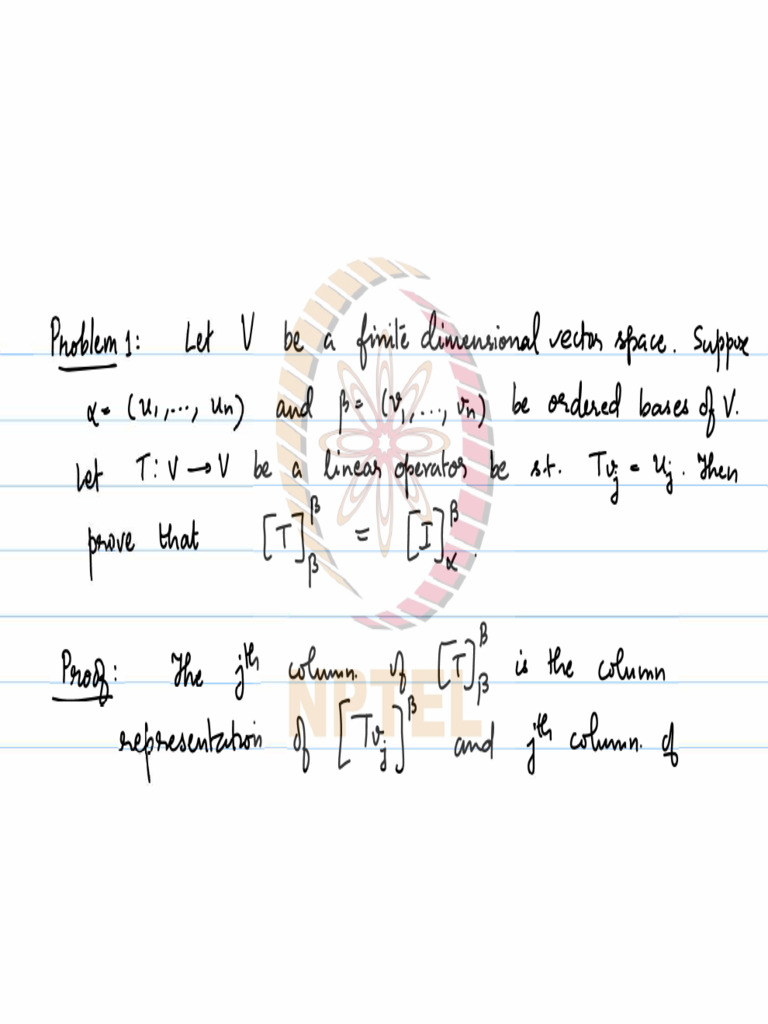 Problem 1: Let V be a finite dimensional vector space. Suppose
α = (u₁,..., uₙ) and β = (v₁,..., vₙ) be ordered bases of V.
Let T: V → V be a linear operator be s.t. Tvⱼ = uⱼ. Then
prove that [T]_β^β = [I]_α^β.
Proof: The jᵗʰ column of [T]_β^β is the column
representation of [Tvⱼ]^β and jᵗʰ column of
NPTEL